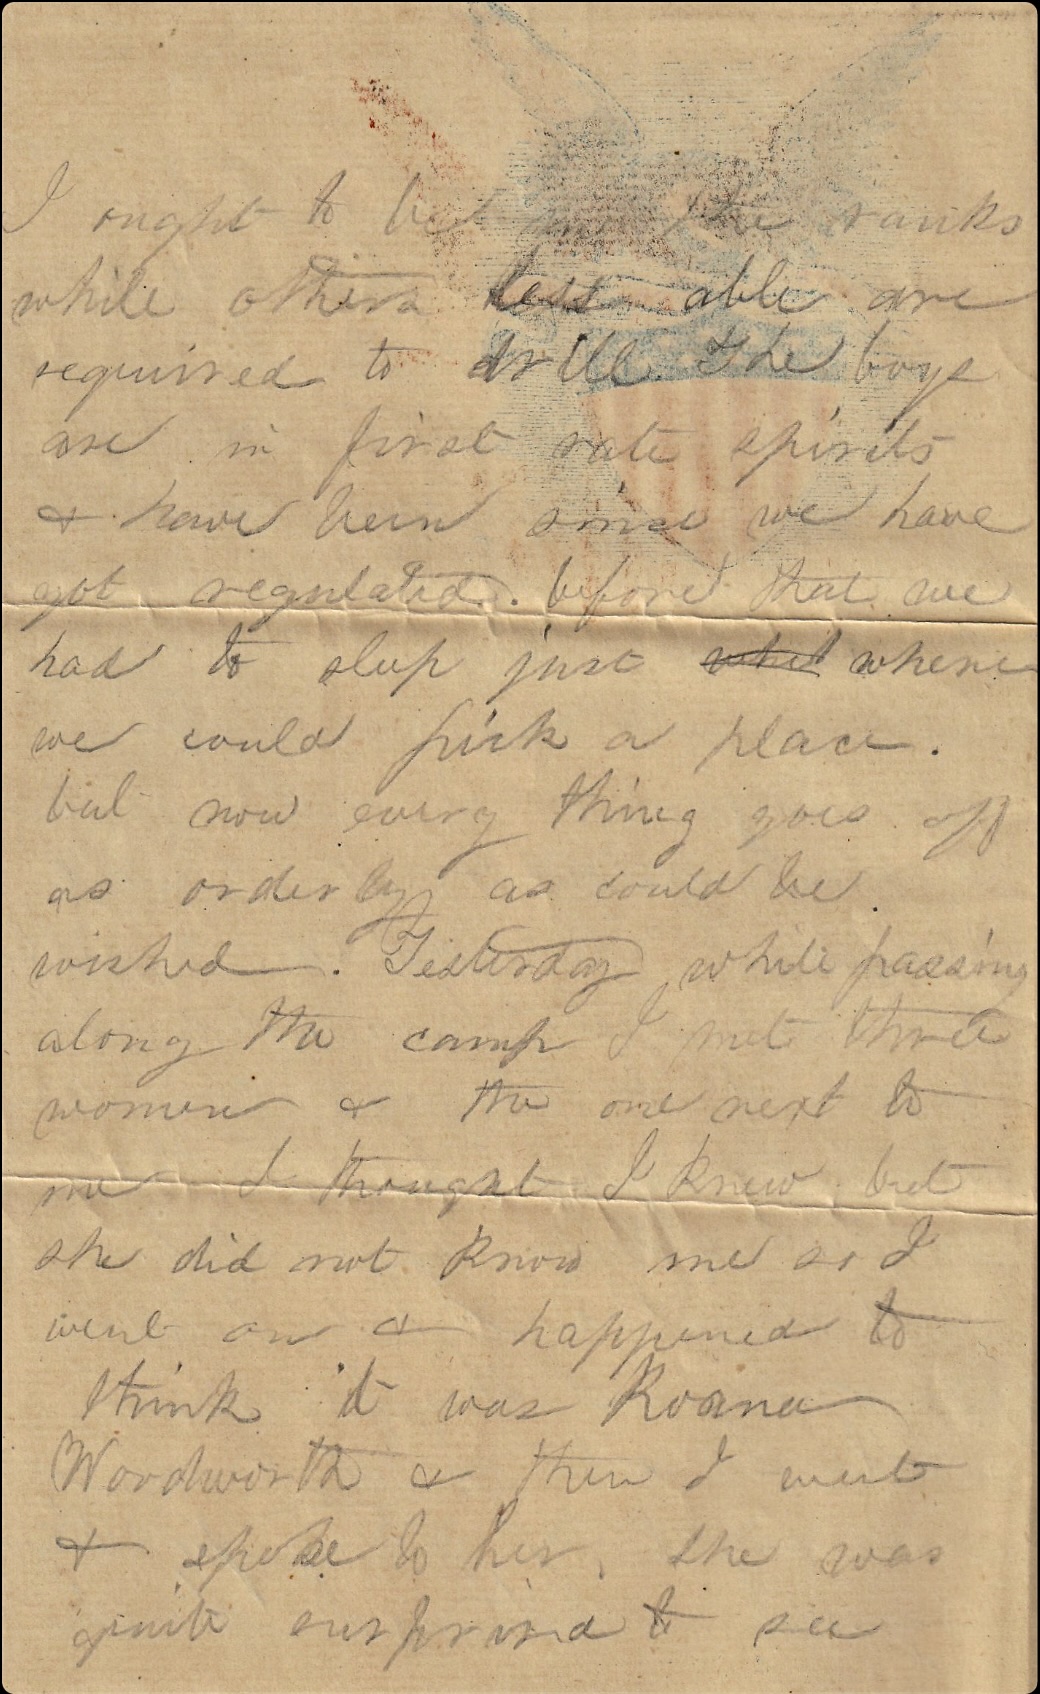 I ought to be in the ranks
while others less able are
required to drill. The boys
are in first rate spirits
& have been since we have
got regulated. before that we
had to slep just whel where
we could pick a place.
but now every thing goes off
as orderly as could be
wished. Yesterday while passing
along the camp I met three
women & the one next to
me I thought I knew but
she did not know me so I
went on & happened to
think it was Roana
Wordworth & then I went
& spoke to her, she was
quite surprised to see